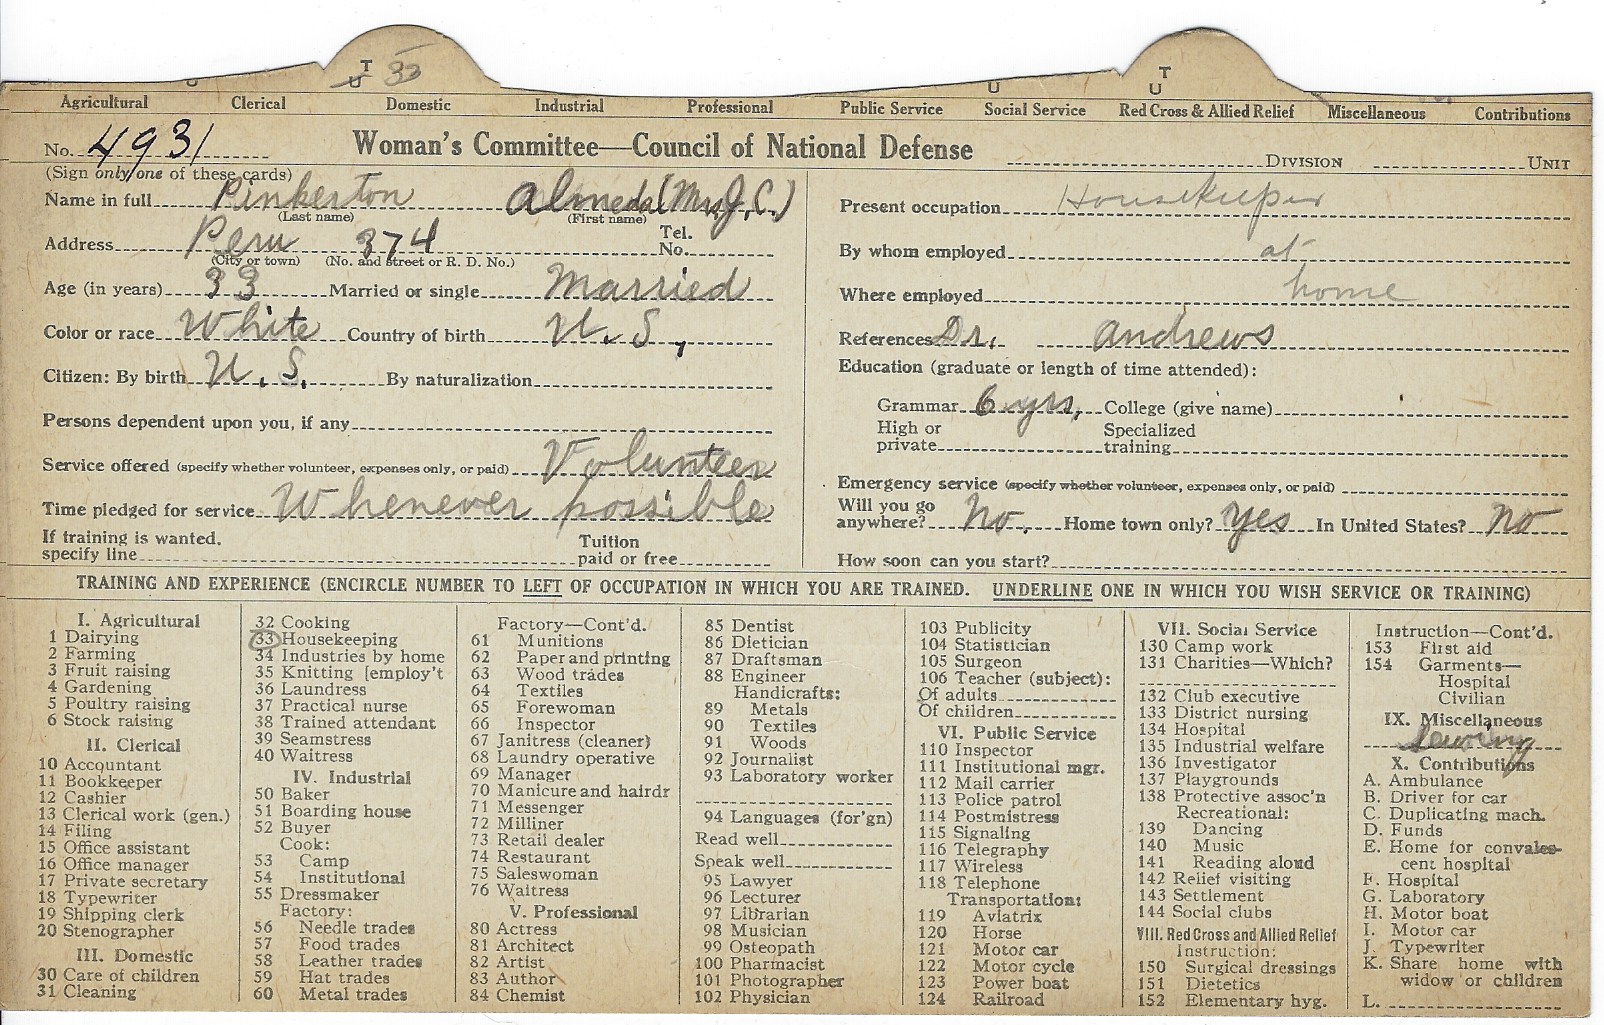 T
U 33
U
T
U
Agricultural Clerical Domestic Industrial Professional Public Service Social Service Red Cross & Allied Relief Miscellaneous Contributions
No. 4931 Woman's Committee—Council of National Defense DIVISION UNIT
(Sign only one of these cards)
Name in full Pinkerton Almeda (Mrs. J. C.)
(Last name) (First name)
Address Peru 374 Tel. No.
(City or town) (No. and street or R. D. No.)
Age (in years) 33 Married or single Married
Color or race White Country of birth U. S.,
Citizen: By birth U. S. By naturalization
Persons dependent upon you, if any
Service offered (specify whether volunteer, expenses only, or paid) Volunteer
Time pledged for service Whenever possible
If training is wanted,
specify line
Tuition
paid or free
Present occupation Housekeeper
By whom employed at
Where employed home
References Dr. Andrews
Education (graduate or length of time attended):
Grammar 6 yrs, College (give name)
High or
private
Specialized
training
Emergency service (specify whether volunteer, expenses only, or paid)
Will you go
anywhere? No, Home town only? Yes In United States? no
How soon can you start?
TRAINING AND EXPERIENCE (ENCIRCLE NUMBER TO LEFT OF OCCUPATION IN WHICH YOU ARE TRAINED. UNDERLINE ONE IN WHICH YOU WISH SERVICE OR TRAINING)
I. Agricultural
1 Dairying
2 Farming
3 Fruit raising
4 Gardening
5 Poultry raising
6 Stock raising
II. Clerical
10 Accountant
11 Bookkeeper
12 Cashier
13 Clerical work (gen.)
14 Filing
15 Office assistant
16 Office manager
17 Private secretary
18 Typewriter
19 Shipping clerk
20 Stenographer
III. Domestic
30 Care of children
31 Cleaning
32 Cooking
33 Housekeeping
34 Industries by home
35 Knitting [employ't
36 Laundress
37 Practical nurse
38 Trained attendant
39 Seamstress
40 Waitress
IV. Industrial
50 Baker
51 Boarding house
52 Buyer
Cook:
53 Camp
54 Institutional
55 Dressmaker
Factory:
56 Needle trades
57 Food trades
58 Leather trades
59 Hat trades
60 Metal trades
Factory—Cont'd.
61 Munitions
62 Paper and printing
63 Wood trades
64 Textiles
65 Forewoman
66 Inspector
67 Janitress (cleaner)
68 Laundry operative
69 Manager
70 Manicure and hairdr
71 Messenger
72 Milliner
73 Retail dealer
74 Restaurant
75 Saleswoman
76 Waitress
V. Professional
80 Actress
81 Architect
82 Artist
83 Author
84 Chemist
85 Dentist
86 Dietician
87 Draftsman
88 Engineer
Handicrafts:
89 Metals
90 Textiles
91 Woods
92 Journalist
93 Laboratory worker
94 Languages (for'gn)
Read well
Speak well
95 Lawyer
96 Lecturer
97 Librarian
98 Musician
99 Osteopath
100 Pharmacist
101 Photographer
102 Physician
103 Publicity
104 Statistician
105 Surgeon
106 Teacher (subject):
Of adults
Of children
VI. Public Service
110 Inspector
111 Institutional mgr.
112 Mail carrier
113 Police patrol
114 Postmistress
115 Signaling
116 Telegraphy
117 Wireless
118 Telephone
Transportation:
119 Aviatrix
120 Horse
121 Motor car
122 Motor cycle
123 Power boat
124 Railroad
VII. Social Service
130 Camp work
131 Charities—Which?
132 Club executive
133 District nursing
134 Hospital
135 Industrial welfare
136 Investigator
137 Playgrounds
138 Protective assoc'n
Recreational:
139 Dancing
140 Music
141 Reading aloud
142 Relief visiting
143 Settlement
144 Social clubs
VIII. Red Cross and Allied Relief
Instruction:
150 Surgical dressings
151 Dietetics
152 Elementary hyg.
Instruction—Cont'd.
153 First aid
154 Garments—
Hospital
Civilian
IX. Miscellaneous
Sewing
X. Contributions
A. Ambulance
B. Driver for car
C. Duplicating mach.
D. Funds
E. Home for convales-
cent hospital
F. Hospital
G. Laboratory
H. Motor boat
I. Motor car
J. Typewriter
K. Share home with
widow or children
L.